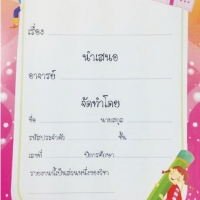 เรื่อง
นำเสนอ
อาจารย์
จัดทำโดย
ชื่อ นามสกุล
รหัสประจำตัว ชั้น
เลขที่ ปีการศึกษา
รายงานนี้เป็นส่วนหนึ่งของวิชา